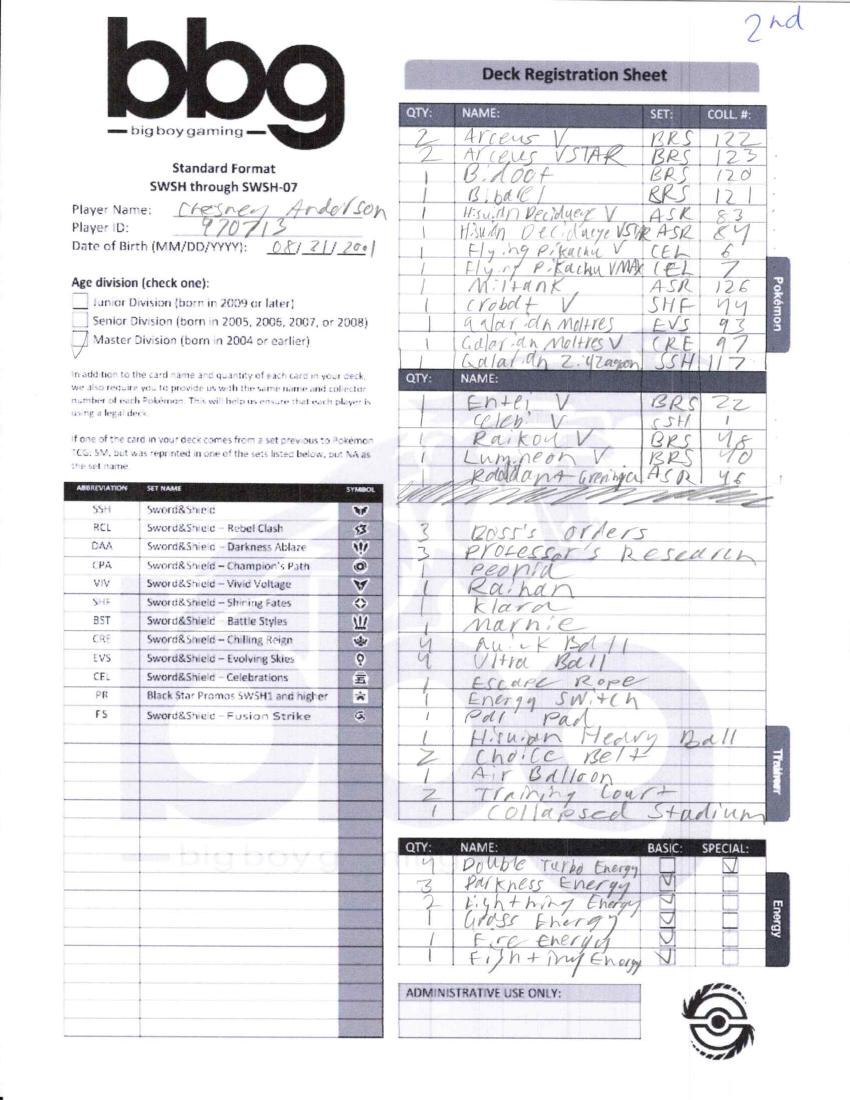 2nd
bbg
big boy gaming
Standard Format
SWSH through SWSH-07
Player Name: Chesney Anderson
Player ID: 970713
Date of Birth (MM/DD/YYYY): 08/21/2001
Age division (check one):
Junior Division (born in 2009 or later)
Senior Division (born in 2005, 2006, 2007, or 2008)
Master Division (born in 2004 or earlier)
In addition to the card name and quantity of each card in your deck,
we also require you to provide us with the same name and collector
number of each Pokémon. This will help us ensure that each player is
using a legal deck.
If one of the card in your deck comes from a set previous to Pokémon
TCG: SM, but was reprinted in one of the sets listed below, put NA as
the set name.
ABBREVIATION SET NAME SYMBOL
SSH Sword&Shield
RCL Sword&Shield – Rebel Clash
DAA Sword&Shield – Darkness Ablaze
CPA Sword&Shield – Champion's Path
VIV Sword&Shield – Vivid Voltage
SHF Sword&Shield – Shining Fates
BST Sword&Shield – Battle Styles
CRE Sword&Shield – Chilling Reign
EVS Sword&Shield – Evolving Skies
CEL Sword&Shield – Celebrations
PR Black Star Promos SWSH1 and higher
FS Sword&Shield – Fusion Strike
Deck Registration Sheet
QTY: NAME: SET: COLL. #:
2 Arceus V BRS 122
2 Arceus VSTAR BRS 123
1 Bidoof BRS 120
1 Bibarel BRS 121
1 Hisuian Decidueye V ASR 83
1 Hisuian Decidueye VSTAR ASR 84
1 Flying Pikachu V CEL 6
1 Flying Pikachu VMAX CEL 7
1 Miltank ASR 126
1 Crobat V SHF 44
1 Galarian Moltres EVS 93
1 Galarian Moltres V CRE 97
1 Galarian Zigzagoon SSH 117
Pokémon
QTY: NAME:
1 Entei V BRS 22
1 Celebi V SSH 1
1 Raikou V BRS 48
1 Lumineon V BRS 40
1 Radiant Greninja ASR 46
3 Boss's orders
3 Professor's Research
1 Peonia
1 Raihan
1 Klara
1 Marnie
4 Quick Ball
4 Ultra Ball
1 Escape Rope
1 Energy Switch
1 Pal Pad
1 Hisuian Heavy Ball
2 Choice Belt
1 Air Balloon
2 Training Court
1 Collapsed Stadium
Trainer
QTY: NAME: BASIC: SPECIAL:
4 Double Turbo Energy
3 Darkness Energy
2 Lightning Energy
1 Grass Energy
1 Fire Energy
1 Fighting Energy
Energy
ADMINISTRATIVE USE ONLY: